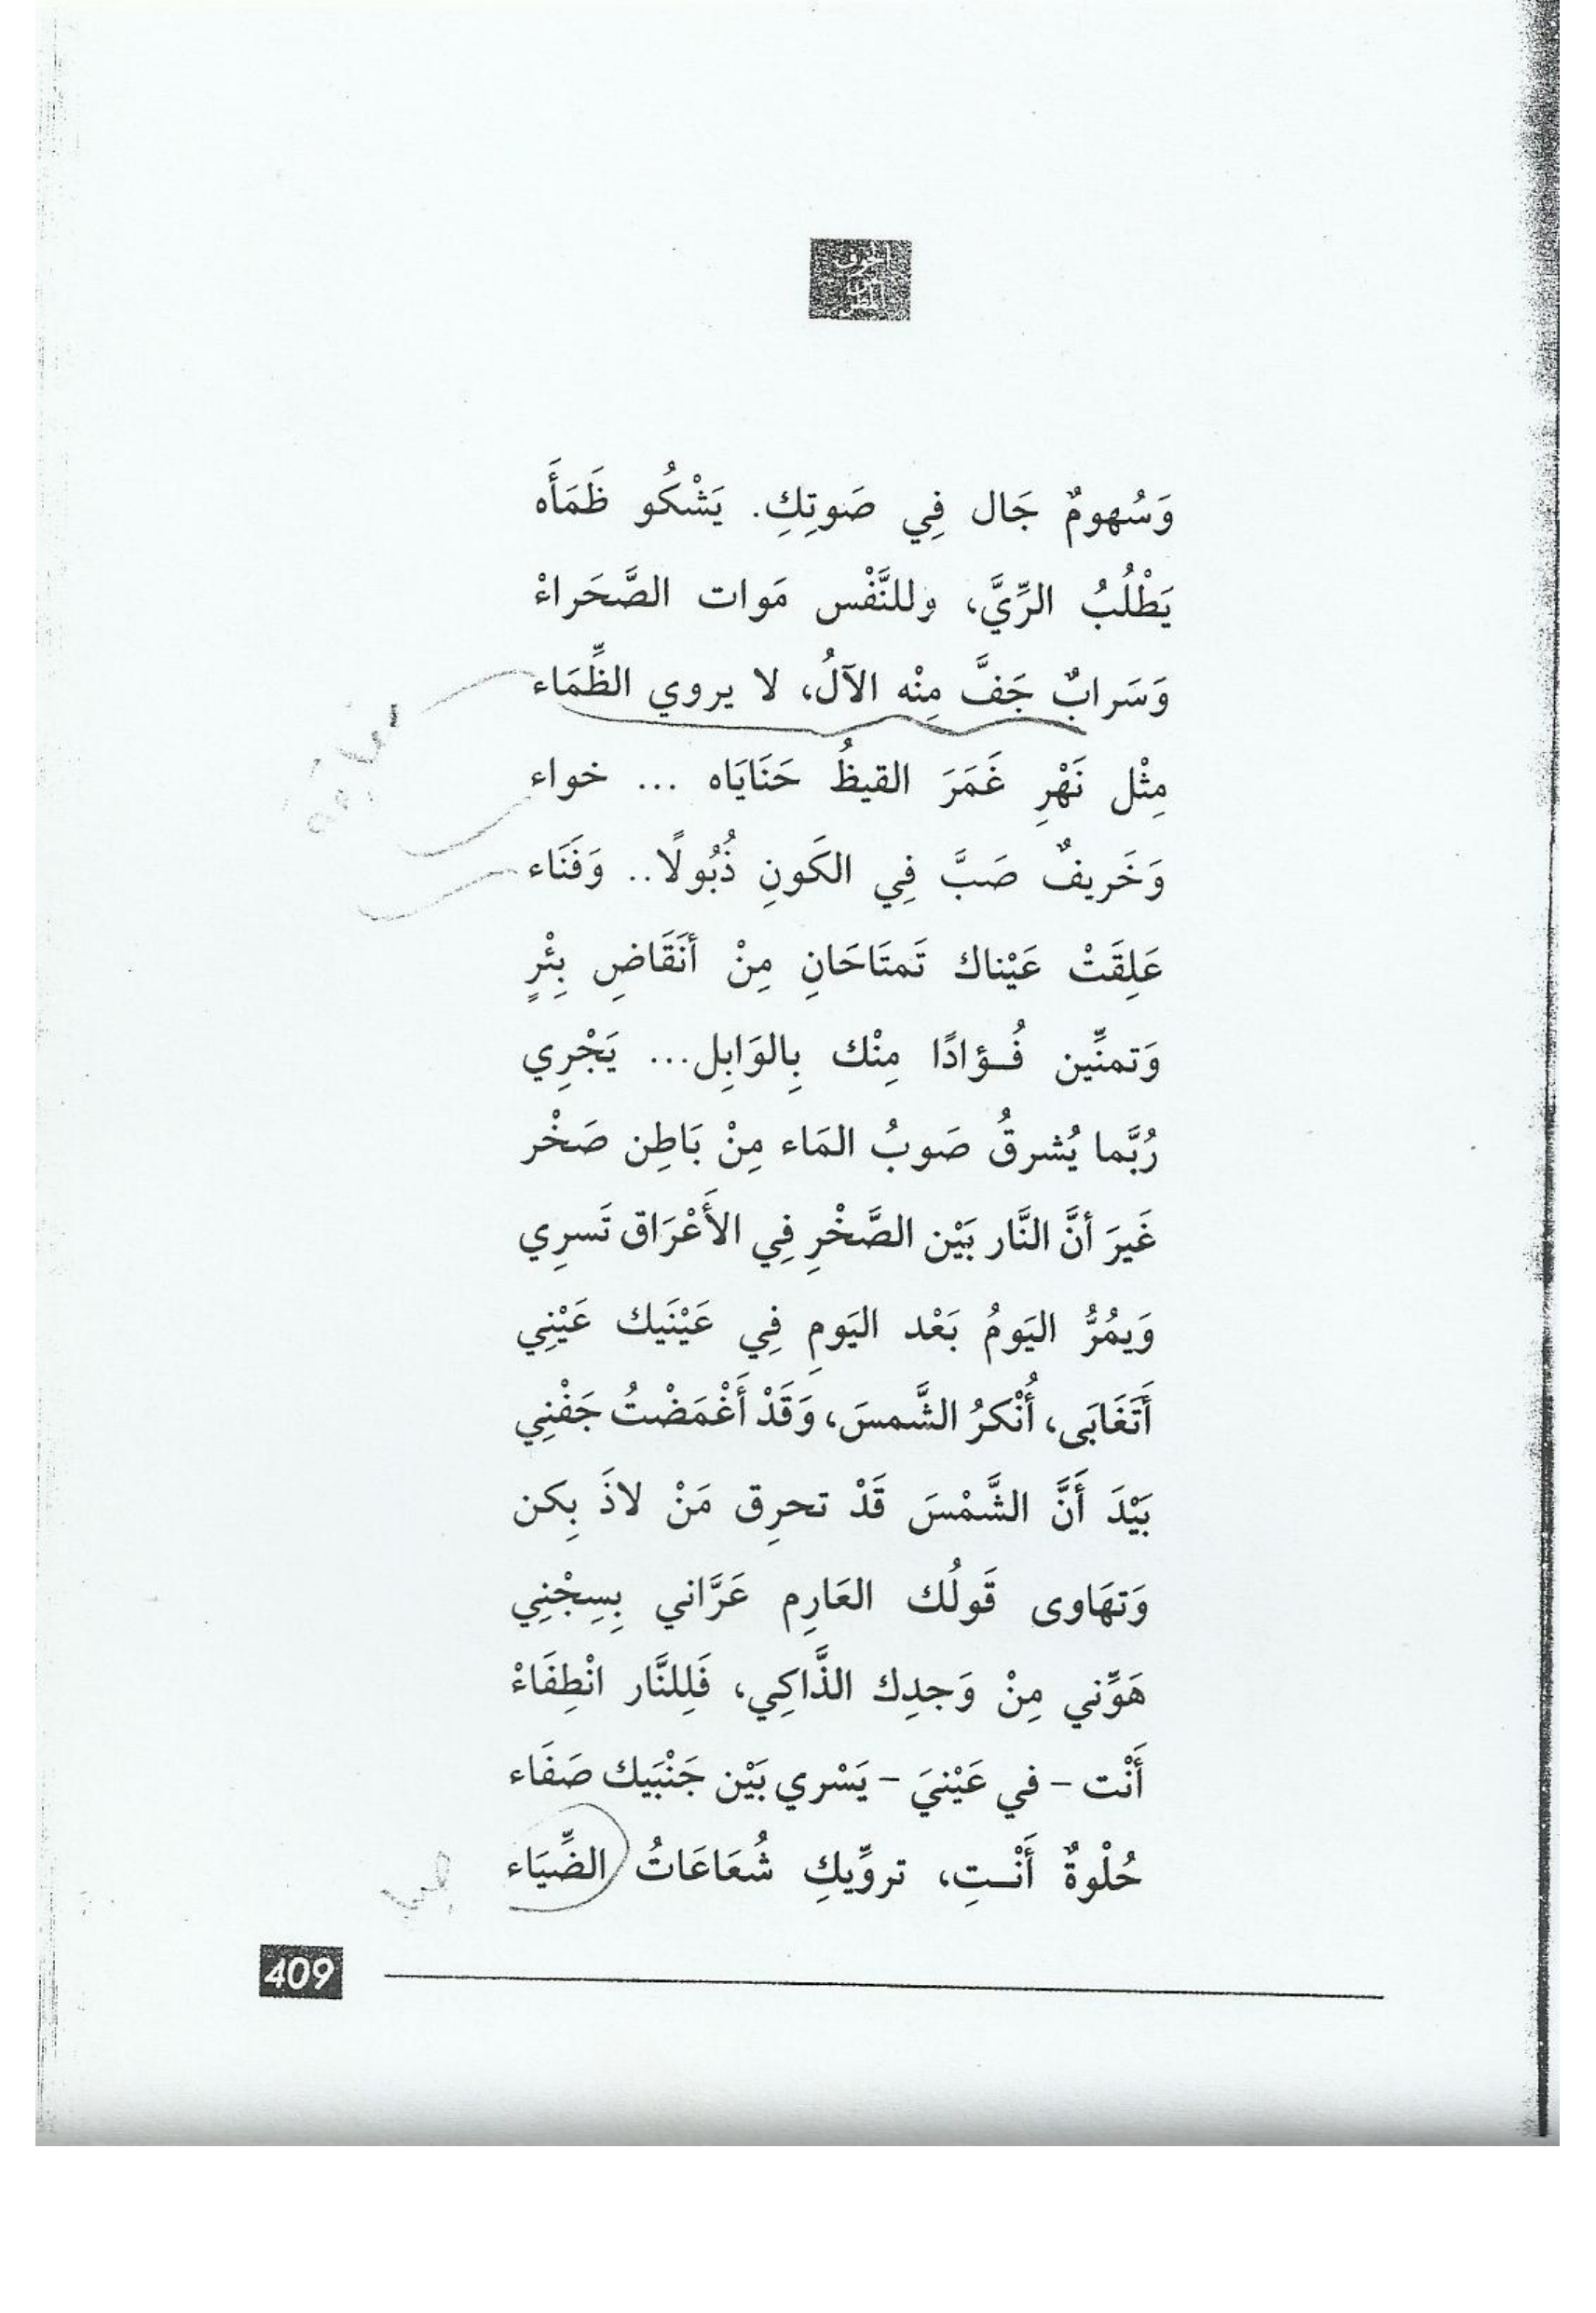 الخوف
من
المطر
وَسُهومٌ جَال فِي صَوتِكِ. يَشْكُو ظَمَأَه
يَطْلُبُ الرِّيَّ، وللنَّفْس مَوات الصَّحَراءْ
وَسَرابٌ جَفَّ مِنْه الآلُ، لا يروي الظِّمَاء
مِثْل نَهْرِ غَمَرَ القيظُ حَنَايَاه ... خواء
وَخَريفٌ صَبَّ فِي الكَونِ ذُبُولًا.. وَفَنَاء
عَلِقَتْ عَيْناك تَمتَاحَانِ مِنْ أنَقَاضِ بِئْرٍ
وَتمنِّين فُـؤادًا مِنْك بِالوَابِل... يَجْرِي
رُبَّما يُشرقُ صَوبُ المَاء مِنْ بَاطِن صَخْر
غَيرَ أنَّ النَّار بَيْن الصَّخْرِ فِي الأَعْرَاق تَسرِي
وَيمُرُّ اليَومُ بَعْد اليَومِ فِي عَيْنَيك عَيْنِي
أَتَغَابَى، أُنْكرُ الشَّمسَ، وَقَدْ أَغْمَضْتُ جَفْنِي
بَيْدَ أَنَّ الشَّمْسَ قَدْ تحرِق مَنْ لاذَ بِكن
وَتهَاوى قَولُك العَارِم عَرَّاني بِسِجْنِي
هَوِّني مِنْ وَجدِك الذَّاكِي، فَلِلنَّار انْطِفَاءْ
أَنْت – في عَيْنيَ – يَسْري بَيْن جَنْبَيك صَفَاء
حُلْوةٌ أَنْـتِ، تروِّيكِ شُعَاعَاتُ الضِّيَاء
409